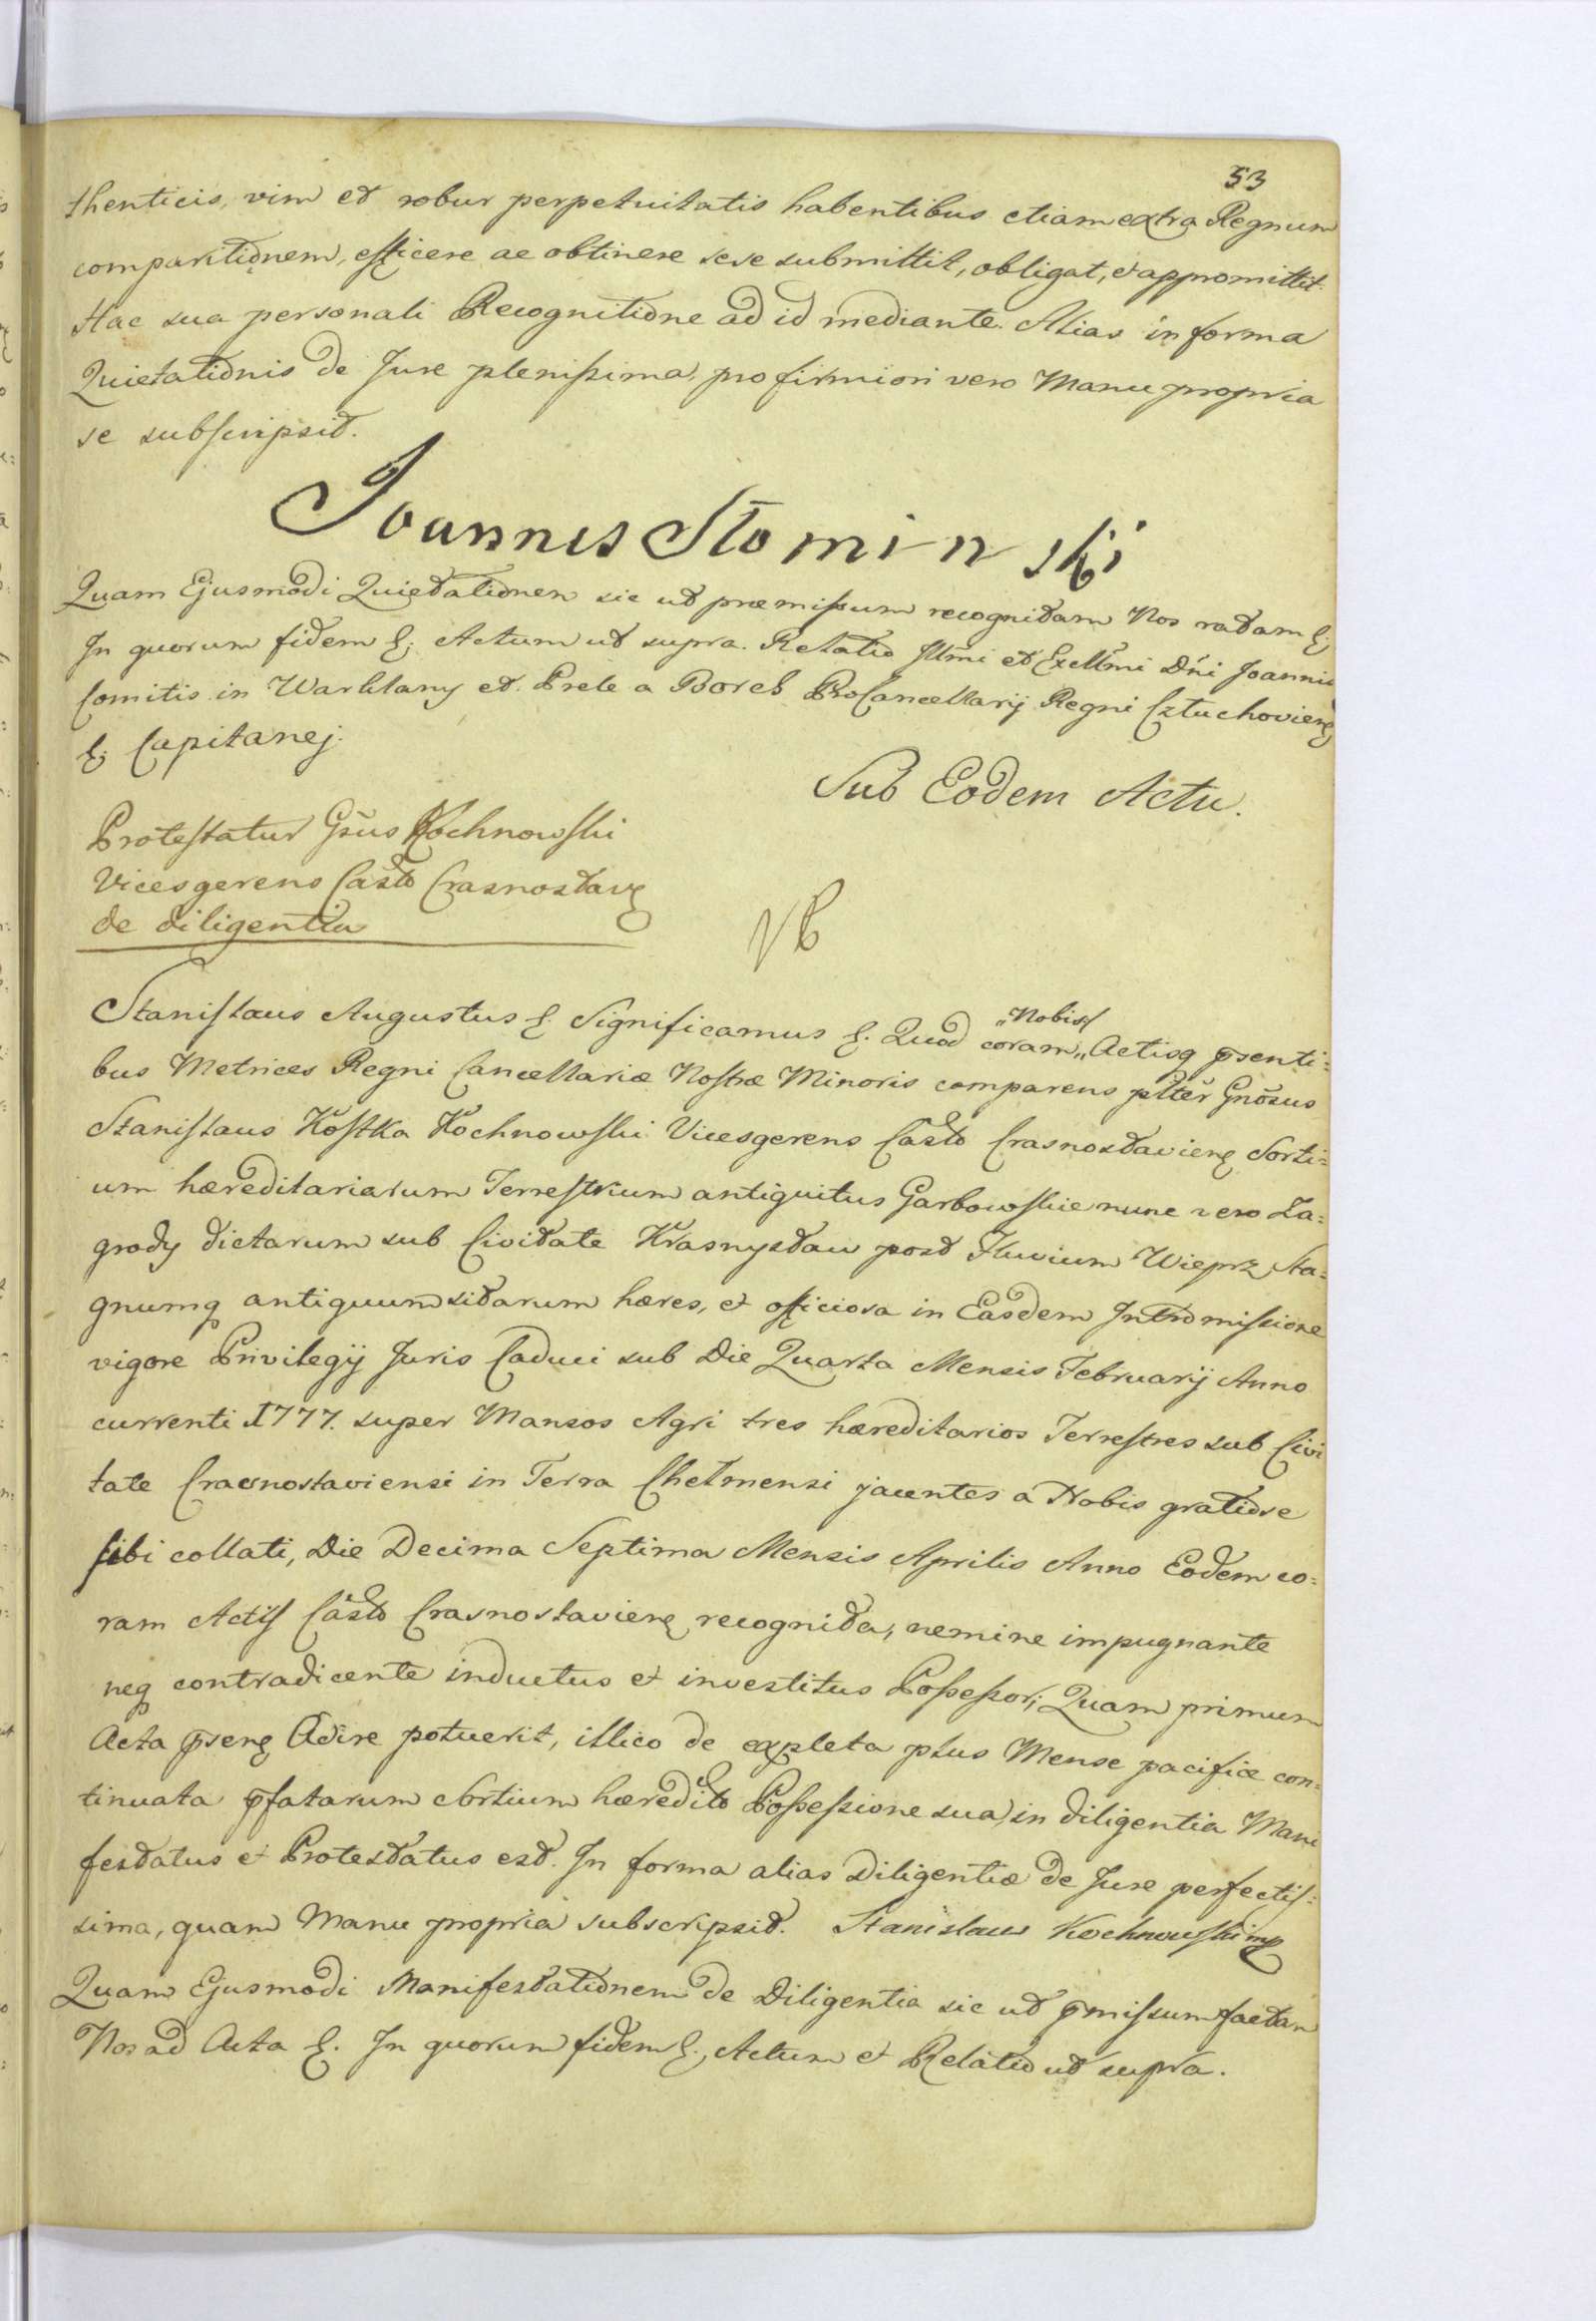 53
thenticis, vim et robur perpetuitatis habentibus etiam extra Regnum
comparitionem, efficere ac obtinere sese submittit, obligat, et appromittit.
Hac sua personali Recognitione ad id mediante. Alias in forma
Quietationis de Jure plenissima, pro firmiori vero Manu propria
se subscripsit.
Joannes Słominski
Quam Ejusmodi Quietationem sic ut præmissum recognitam Nos ratam &
In quorum fidem & Actum ut supra. Relatio Illmi et Excellmi Dni Joannis
Comitis in Warklany et Prele a Borch ProCancellarij Regni Człuchovien
& Capitanej.
Sub Eodem Actu.
Protestatur Gsus Kochnowski
Vicesgerens Casto Crasnostav
de diligentia
Stanislaus Augustus &. Significamus &. Quod coram „Nobis„ Actisq psenti=
bus Metrices Regni Cancellariæ Nostræ Minoris comparens plter Gnosus
Stanislaus Kostka Kochnowski Vicesgerens Casto Crasnostavien Sorti=
um hæreditariarum Terrestrium antiquitus Garbowskie nunc vero Za=
grody dictarum sub Civitate Krasnystaw post Fluvium Wieprz Sta=
gnumq antiquum sitarum hæres, et officiosa in Easdem Intromissione
vigore Privilegij Juris Caduci sub Die Quarta Mensis Februarij Anno
currenti 1777. super Mansos Agri tres hæreditarios Terrestres sub Civi
tate Crasnostaviensi in Terra Chelmensi jacentes a Nobis gratiose
sibi collati, Die Decima Septima Mensis Aprilis Anno Eodem co=
ram Actis Casto Crasnostavien recognita, nemine impugnante
neq contradicente inductus et investitus Possessor; Quam primum
Acta psen Adire potuerit, illico de expleta plus Mense pacifice con=
tinuata pfatarum Sortium hæredito Possessione sua, in diligentia Mani
festatus et Protestatus est. In forma alias Diligentiæ de Jure perfectis=
sima, quam Manu propria subscripsit. Stanislaus Kochnowski mp
Quam Ejusmodi Manifestationem de Diligentia sic ut pmissum factam
Nos ad Acta &. In quorum fidem &. Actum et Relatio ut supra.